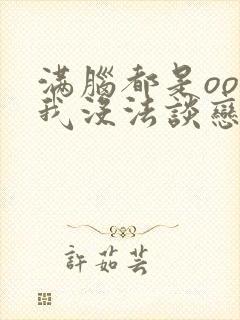 滿腦都是oo
我沒法談戀
許茹芸